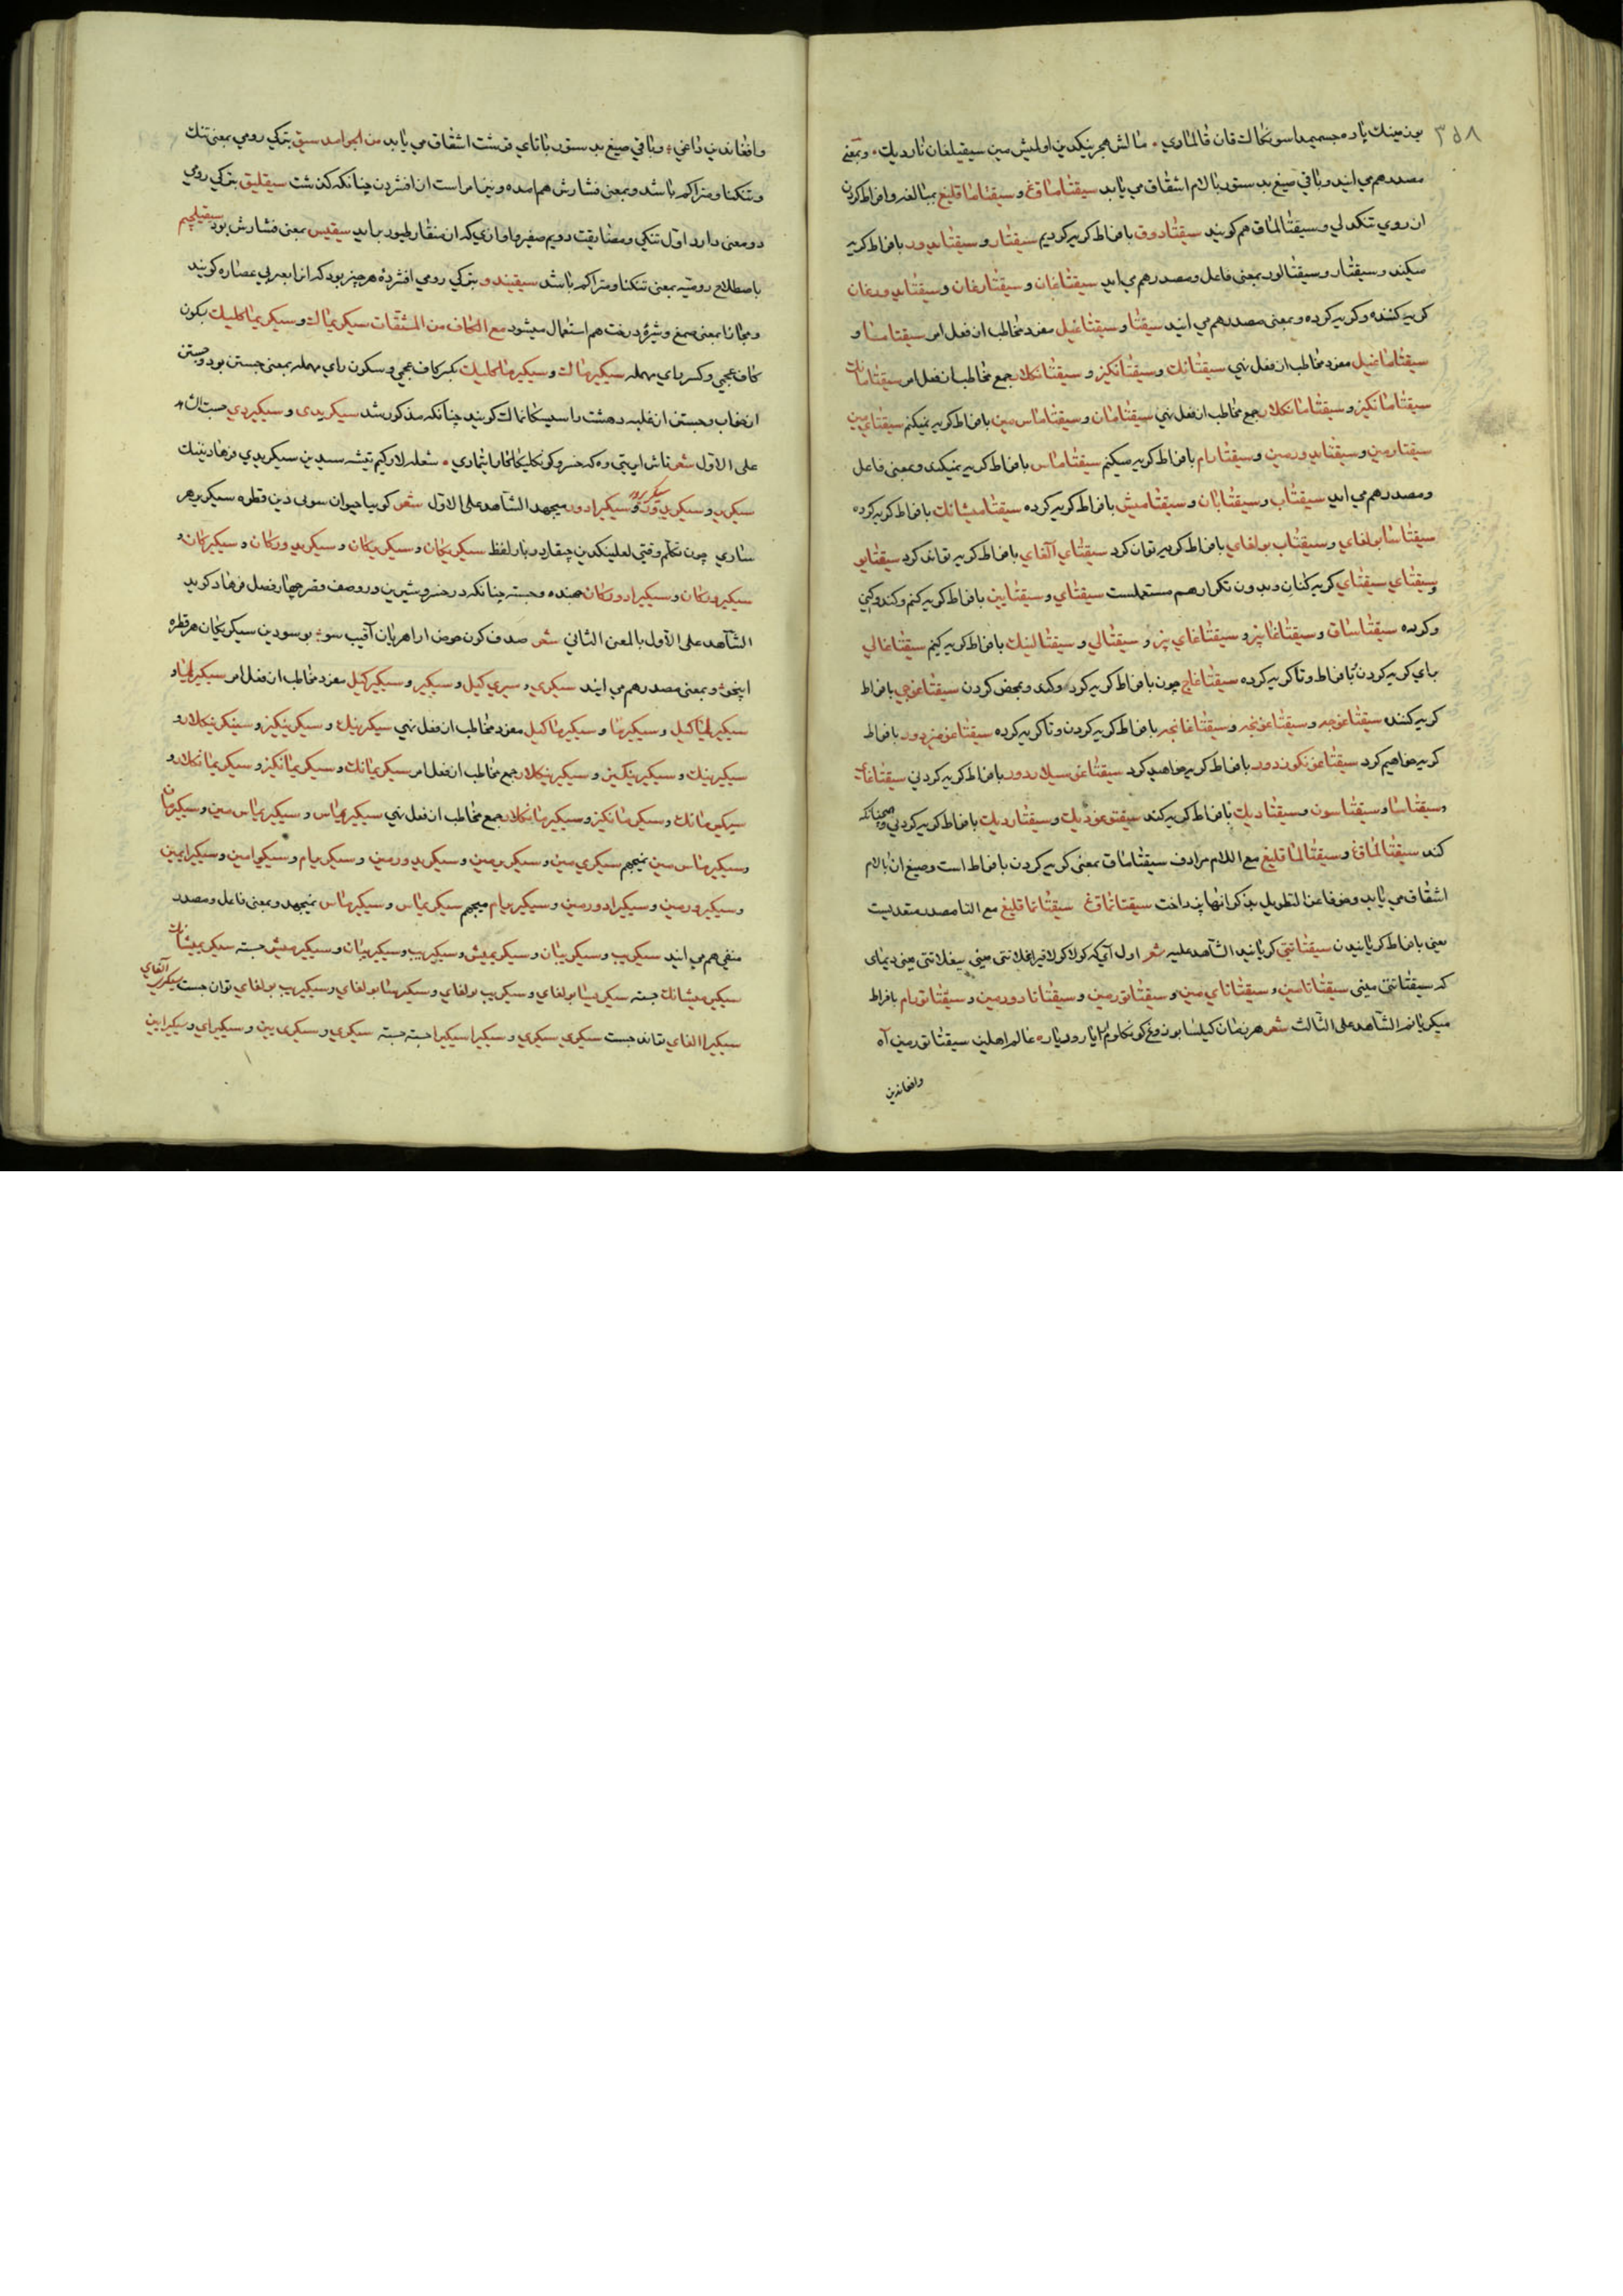 ۳۵۸
بوزمینك یاده جسمیمدا سونکاك قان قالمادي مالش هجرینکدین اولمیش مین سیقیلغان ناردیك وبمعنی
مصدر هم می ایند وباقی صیغ بدستور بالام اشتقاق می یابد سیقتاماقغ و سیقتاماقلیغ بمبالغه وافراط کردن
ازروي تنکدلي وسیقتالماق هم کویند سیقتادوق بافراط کریه کردیم سیقتار و سیقتایدور بافراط کریه
میکند وسیقتار وسیقتالور بمعنی فاعل ومصدر هم می اید سیقتاغان و سیقتارغان وسیقتایدورغان
کریه کننده وکریه کرده وبمعنی مصدر هم می ایند سیقتا و سیقتاغیل مفرد مخاطب از فعل امر سیقتاما و
سیقتاماغیل مفرد مخاطب از فعل نهي سیقتانك وسیقتانکیز و سیقتانکلار جمع مخاطب از فعل امر سیقتامانك
سیقتامانکیز و سیقتامانکلار جمع مخاطب از فعل نهي سیقتامان وسیقتاماس مین بافراط کریه نمیکنم سیقتاي مین
سیقتارمین وسیقتایدورمین وسیقتارام بافراط کریه میکنم سیقتاماس بافراط کریه نمیکند وبمعنی فاعل
ومصدر هم می اید سیقتاب وسیقتابان وسیقتامیش بافراط کریه کرده سیقتامیشانك بافراط کریه کرده
سیقتاسا بولغاي وسیقتاب بولغاي بافراط کریه توان کرد سیقتاي آلغاي بافراط کریه تواند کرد سیقتایو
وسیقتاي سیقتاي کریه کنان وبدون تکرار هم مستعملست سیقتاي و سیقتایین بافراط کریه کنم وکند
وکرده سیقتاساق وسیقتاغابیز و سیقتاغاي بیز و سیقتالي و سیقتالینك بافراط کریه کنیم سیقتاغالي
براي کریه کردن بافراط وتا کریه کرده سیقتاغاچ چون بافراط کریه کرد وکند وبمحض کردن سیقتاغوچي بافراط
کریه کننده سیقتاغوجه وسیقتاغونچه وسیقتاغانچه بافراط کریه کردن وتا کریه کرده سیقتاغومیزدور بافراط
کریه خواهیم کرد سیقتاغونکوزدور بافراط کریه خواهید کرد سیقتاغوسیلاردور بافراط کریه کردني سیقتاغاي
وسیقتاسا وسیقتاسون وسیقتادیك بافراط کریه کند سیقتوغودیك وسیقتاردیك بافراط کریه کردني وچنانکه
کند سیقتالماقغ وسیقتالماقلیغ مع اللام مرادف سیقتاماق بمعنی کریه کردن بافراط است وصیغ ان بالام
اشتقاق می یابد وخوفا عن التطویل بذکر انها نپرداخت سیقتاتماقغ سیقتاتماقلیغ مع التا مصدر متعدیست
یعنی بافراط کریانیدن سیقتاتتي کریانید الشاهد علیه شعر اول آي که کولا کولا قیراغلاتتي میني ییغلاتتي میني دیماي
که سیقتاتتي میني سیقتاتاسین و سیقتاتاي مین و سیقتاتورمین و سیقتاتادورمین و سیقتاتورام بافراط
میکریانم الشاهد علی الثالث شعر هر زمان کیلسا بوزوغ کونکلوم ارا یار و دیاره عالم اهلین سیقتاتورمین آه
وافغاندین
وافغاندین داغي وباقي صیغ بدستور باتاي قرشت اشتقاق می یابد من الجوامد سیق بترکي رومي بمعنی تنك
وتنکنا ومتراکم باشد وبمعنی فشارش هم امده ونیز امر است از افشردن چنانکه کذشت سیقلیق بترکي رومي
دو معنی دارد اول تنکي ومضایقت دویم صفیر واوازي که از منقار طیور براید سیقیس بمعنی فشارش بود سیقیلجیم
باصطلاح رومیه بمعنی تنکنا ومتراکم باشد سیقیندو بترکي رومي افشردۀ هر چیز بود که انرا بعربي عصاره کویند
ومجازا بمعنی صمغ وشیرۀ درخت هم استعمال میشود مع الکاف من المشتقات سیکریماك و سیکریماکلیك بکون
کاف عجمي وکسر راي مهمله سیکیرماك و سیکیرماکلیك بکسر کاف عجمي وسکون راي مهمله بمعنی جستن بود وجستن
از خواب وجستن از غلبه دهشت را سیسکانماك کویند چنانکه مذکور شد سیکریدي و سیکیردي جست الشاهد
علی الاول شعر تاش ایتي وه که خسرو کونکلیکا کار ایتمادي شعله لارکیم تیشه سیدین سیکریدي فرهادنینك
سیکریر و سیکریدور و سیکیرادور میجهد الشاهد علی الاول شعر کوییا حیوان سویی دین قطره سیکریر هر
ساري چون تکلم وقتي لعلینکدین چیقار دربار لفظ سیکریکان و سیکریرکان و سیکریدورکان و سیکیرکان و
سیکیردورکان و سیکیرادورکان جهنده وجسته چنانکه در خسرو شیرین در وصف قصر چهار فصل فرهاد کوید
الشاهد علی الاول بالمعنی الثاني شعر صدف کون حوض ارا هر یان آقیب سو بو سودین سیکریکان هر قطره
اینجو وبمعنی مصدر هم می ایند سیکري و سیکریکیل و سیکیر و سیکیرکیل مفرد مخاطب از فعل امر سیکریما و
سیکریماکیل و سیکیرما و سیکیرماکیل مفرد مخاطب از فعل نهي سیکرینك و سیکرینکیز و سیکرینکلار و
سیکیرینك و سیکیرینکیز و سیکیرینکلار جمع مخاطب از فعل امر سیکریمانك و سیکریمانکیز و سیکریمانکلار و
سیکیرمانك و سیکیرمانکیز و سیکیرمانکلار جمع مخاطب از فعل نهي سیکریماس و سیکریماس مین و سیکیرمان
وسیکیرماس مین نمیجهم سیکري مین و سیکریرمین و سیکریدورمین و سیکریرام و سیکیرامین و سیکیرایمین
و سیکیرورمین و سیکیرادورمین و سیکیررام میجهم سیکریماس و سیکیرماس نمیجهد وبمعنی فاعل ومصدر
منفي هم می ایند سیکریب و سیکریبان و سیکریمیش و سیکیریب و سیکیریبان و سیکیرمیش جسته سیکریمیشانك
سیکیرمیشانك جسته سیکریسا بولغاي و سیکریب بولغاي و سیکیرسا بولغاي و سیکیریب بولغاي توان جست سیکري آلغاي
سیکیرا الغاي تواند جست سیکري سیکري و سیکیرا سیکیرا جسته جسته سیکري و سیکریین و سیکیراي و سیکیرایین